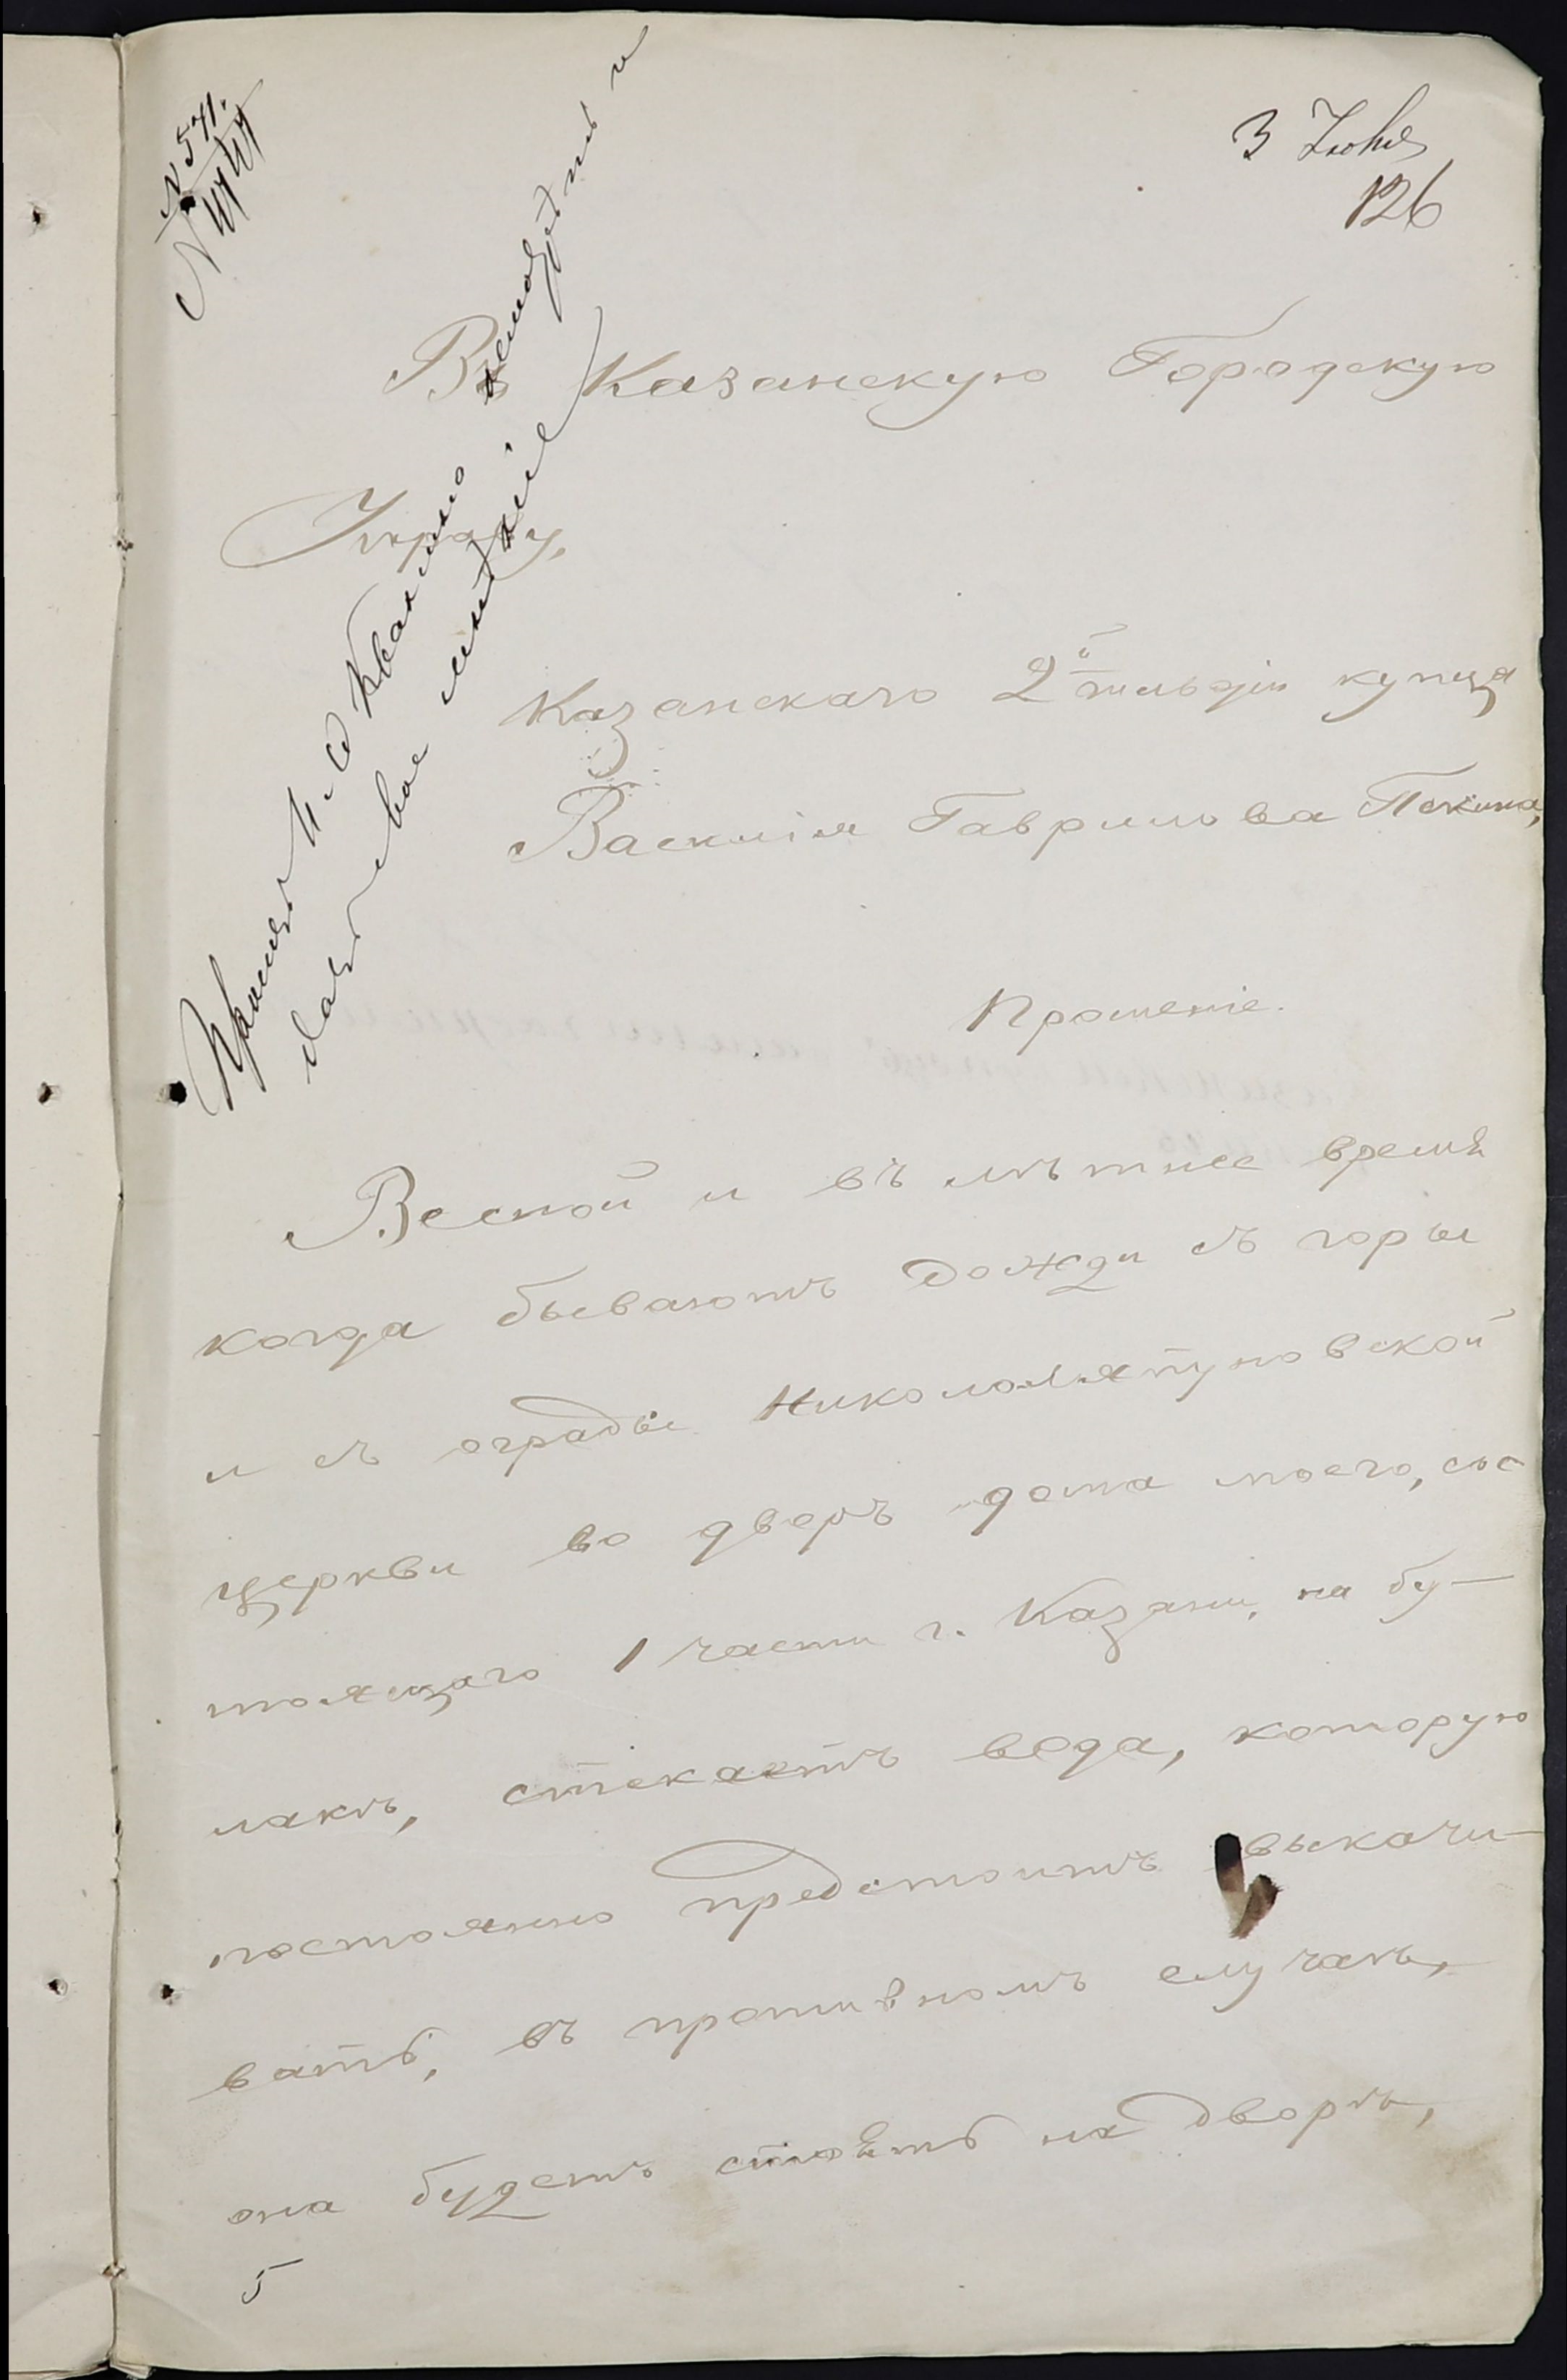 N 541.
3 Іюня
126
Въ Казанскую Городскую
Управу,
Казанскаго 2й гильдіи купца
Василія Гаврилова Пекина,
Прошеніе.
Весной и въ лѣтнее время
когда бываютъ дожди съ горы
и съ ограды Никололяпуновской
церкви во дворъ дома моего, сос
тоящаго 1 части г. Казани, на бу-
лакѣ, стекаетъ вода, которую
постоянно предстоитъ выкачи-
вать, въ противномъ случаѣ,
она будетъ стоять на дворѣ,
5
Прошу И. О. осмотрѣть и
дать свое мнѣніе